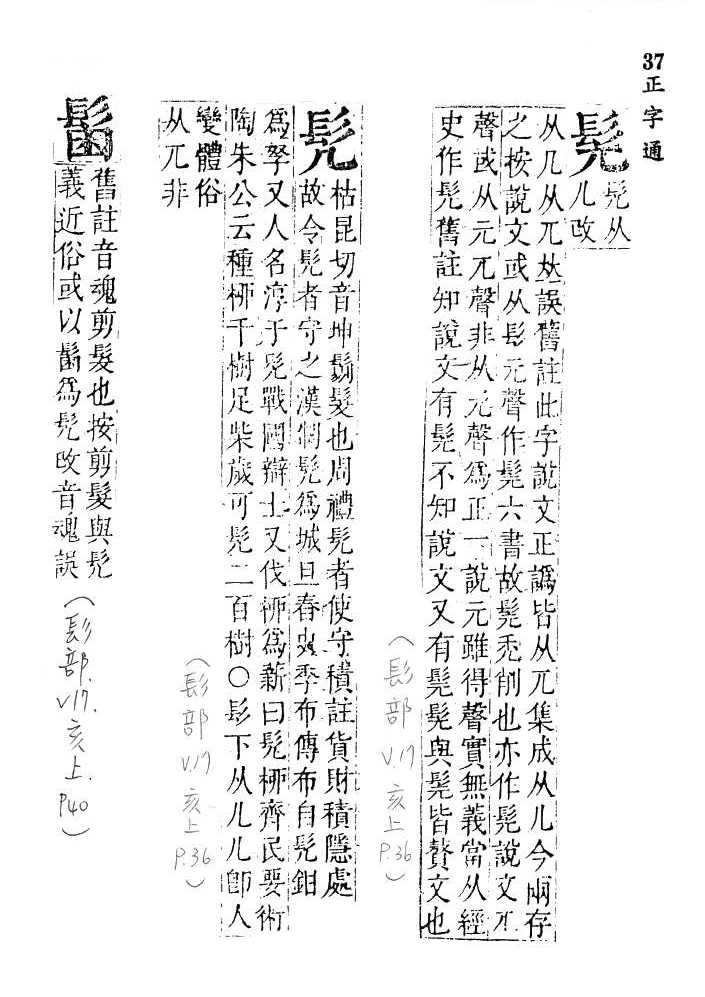 37 正字通
髡
髡从
儿改
从几从兀𠀤誤舊註此字說文正譌皆从兀集成从儿今兩存
之按說文或从髟元聲作髨六書故髡禿削也亦作髨說文兀
聲或从元兀聲非从元聲爲正一說元雖得聲實無義當从經
史作髡舊註知說文有髡不知說文又有髨髡與髨皆贅文也
(髟部 V.17 亥上 P.36)
髡
枯昆切音坤鬀髮也周禮髡者使守積註貨財積隱處
故令髡者守之漢制髡爲城旦舂史季布傳布自髡鉗
爲孥又人名淳于髡戰國辯士又伐桺爲薪曰髡桺齊民要術
陶朱公云種桺千樹足柴歲可髡二百樹○髟下从儿儿卽人
變體俗
从兀非
(髟部 V.17 亥上 P.36)
舊註音魂剪髮也按剪髮與髡
義近俗或以
爲髡改音魂誤
(髟部. V.17. 亥上. P40)